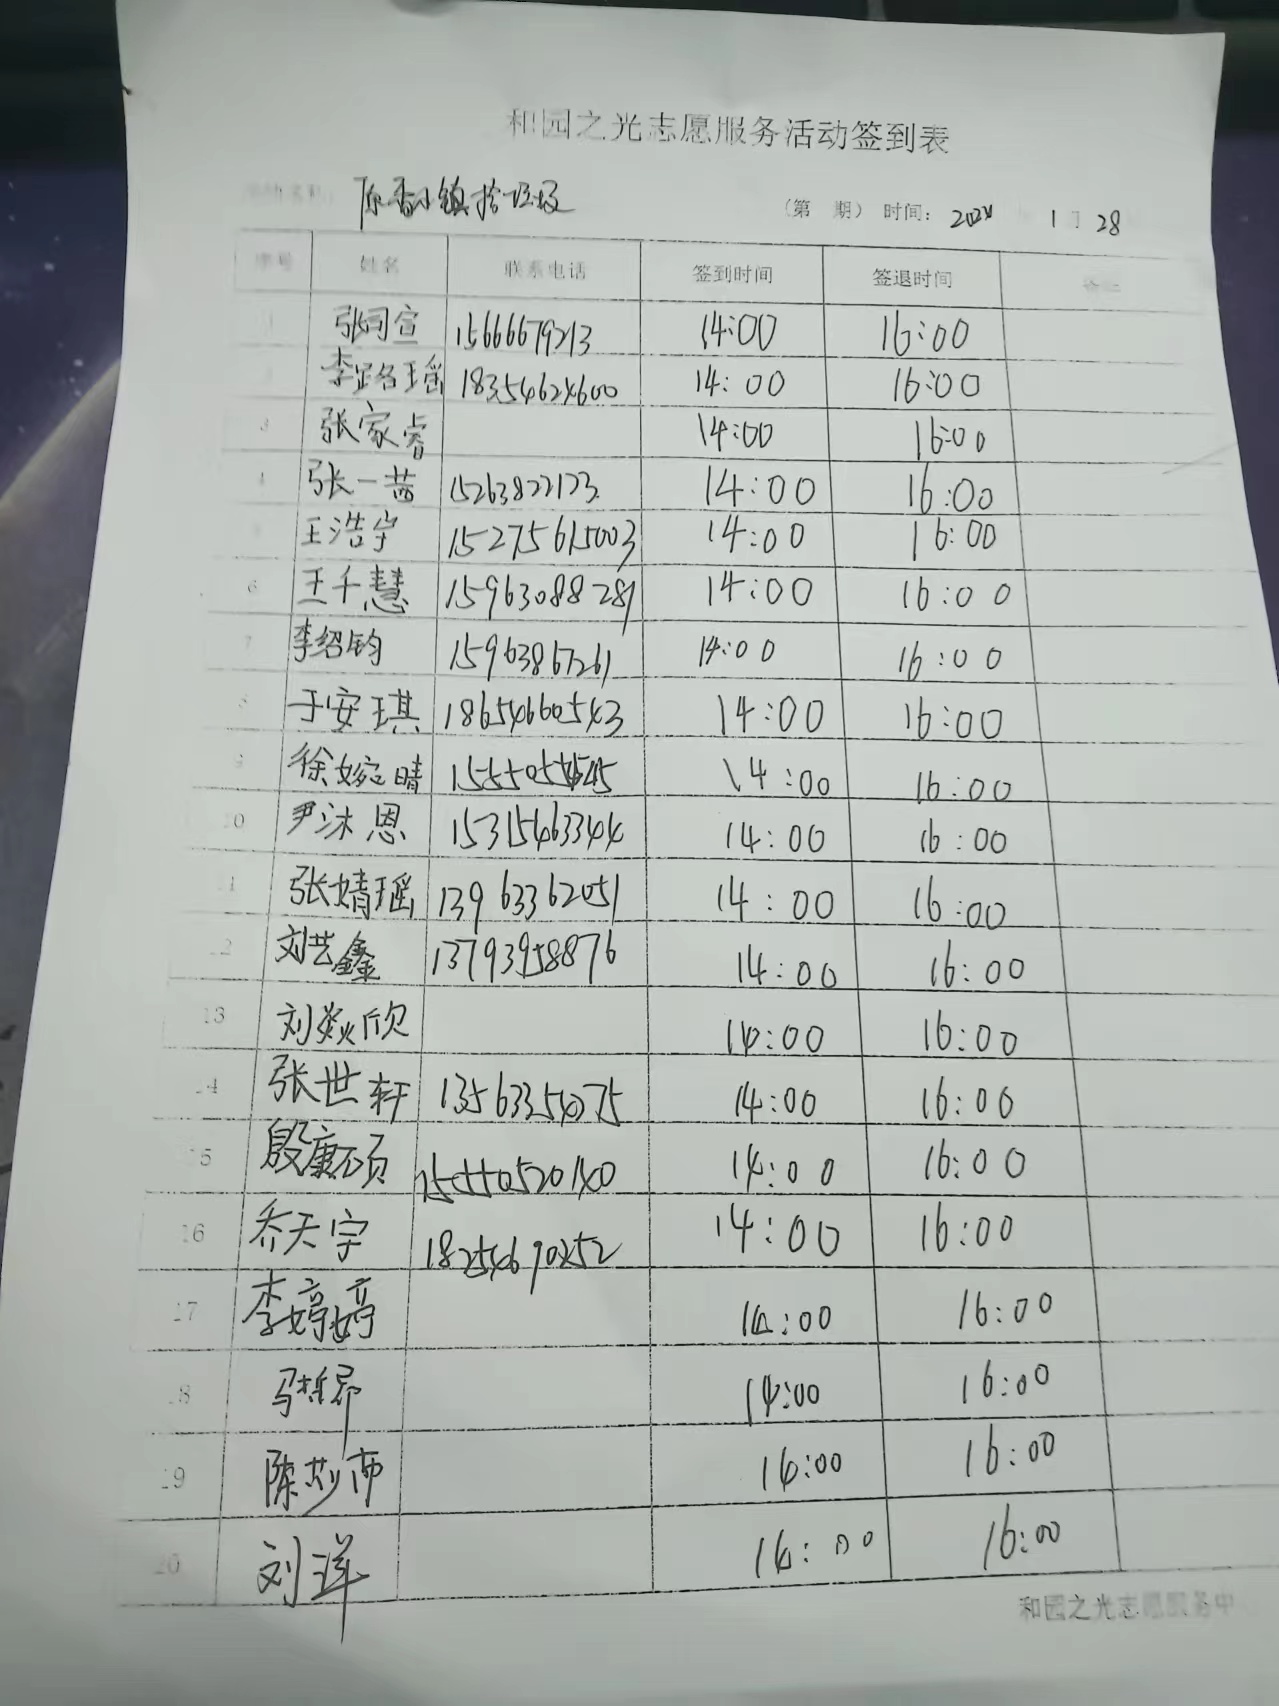 和园之光志愿服务活动签到表
活动名称: 原香小镇捡垃圾 (第 期) 时间: 2024 1月28
序号 姓名 联系电话 签到时间 签退时间 备注
1 张司宣 15666679213 14:00 16:00
14:00 16:00
3 张家睿 14:00 16:00
4 张一茜 15263822123 14:00 16:00
王浩宇 15275615003 14:00 16:00
6 王千慧 15963088281 14:00 16:00
7 李绍钧 15963867261 14:00 16:00
8 于安琪 18654660543 14:00 16:00
9 徐婉晴 14:00 16:00
10 尹沐恩 15315463344 14:00 16:00
11 张婧瑶 13963362051 14:00 16:00
12 刘艺鑫 13793958876 14:00 16:00
13 刘燚欣 14:00 16:00
14 张世轩 14:00 16:00
15 殷康硕 15550520140 14:00 16:00
16 乔天宇 18254690252 14:00 16:00
17 李婷婷 14:00 16:00
18 14:00 16:00
19 14:00 16:00
20 刘洋 14:00 16:00
和园之光志愿服务中